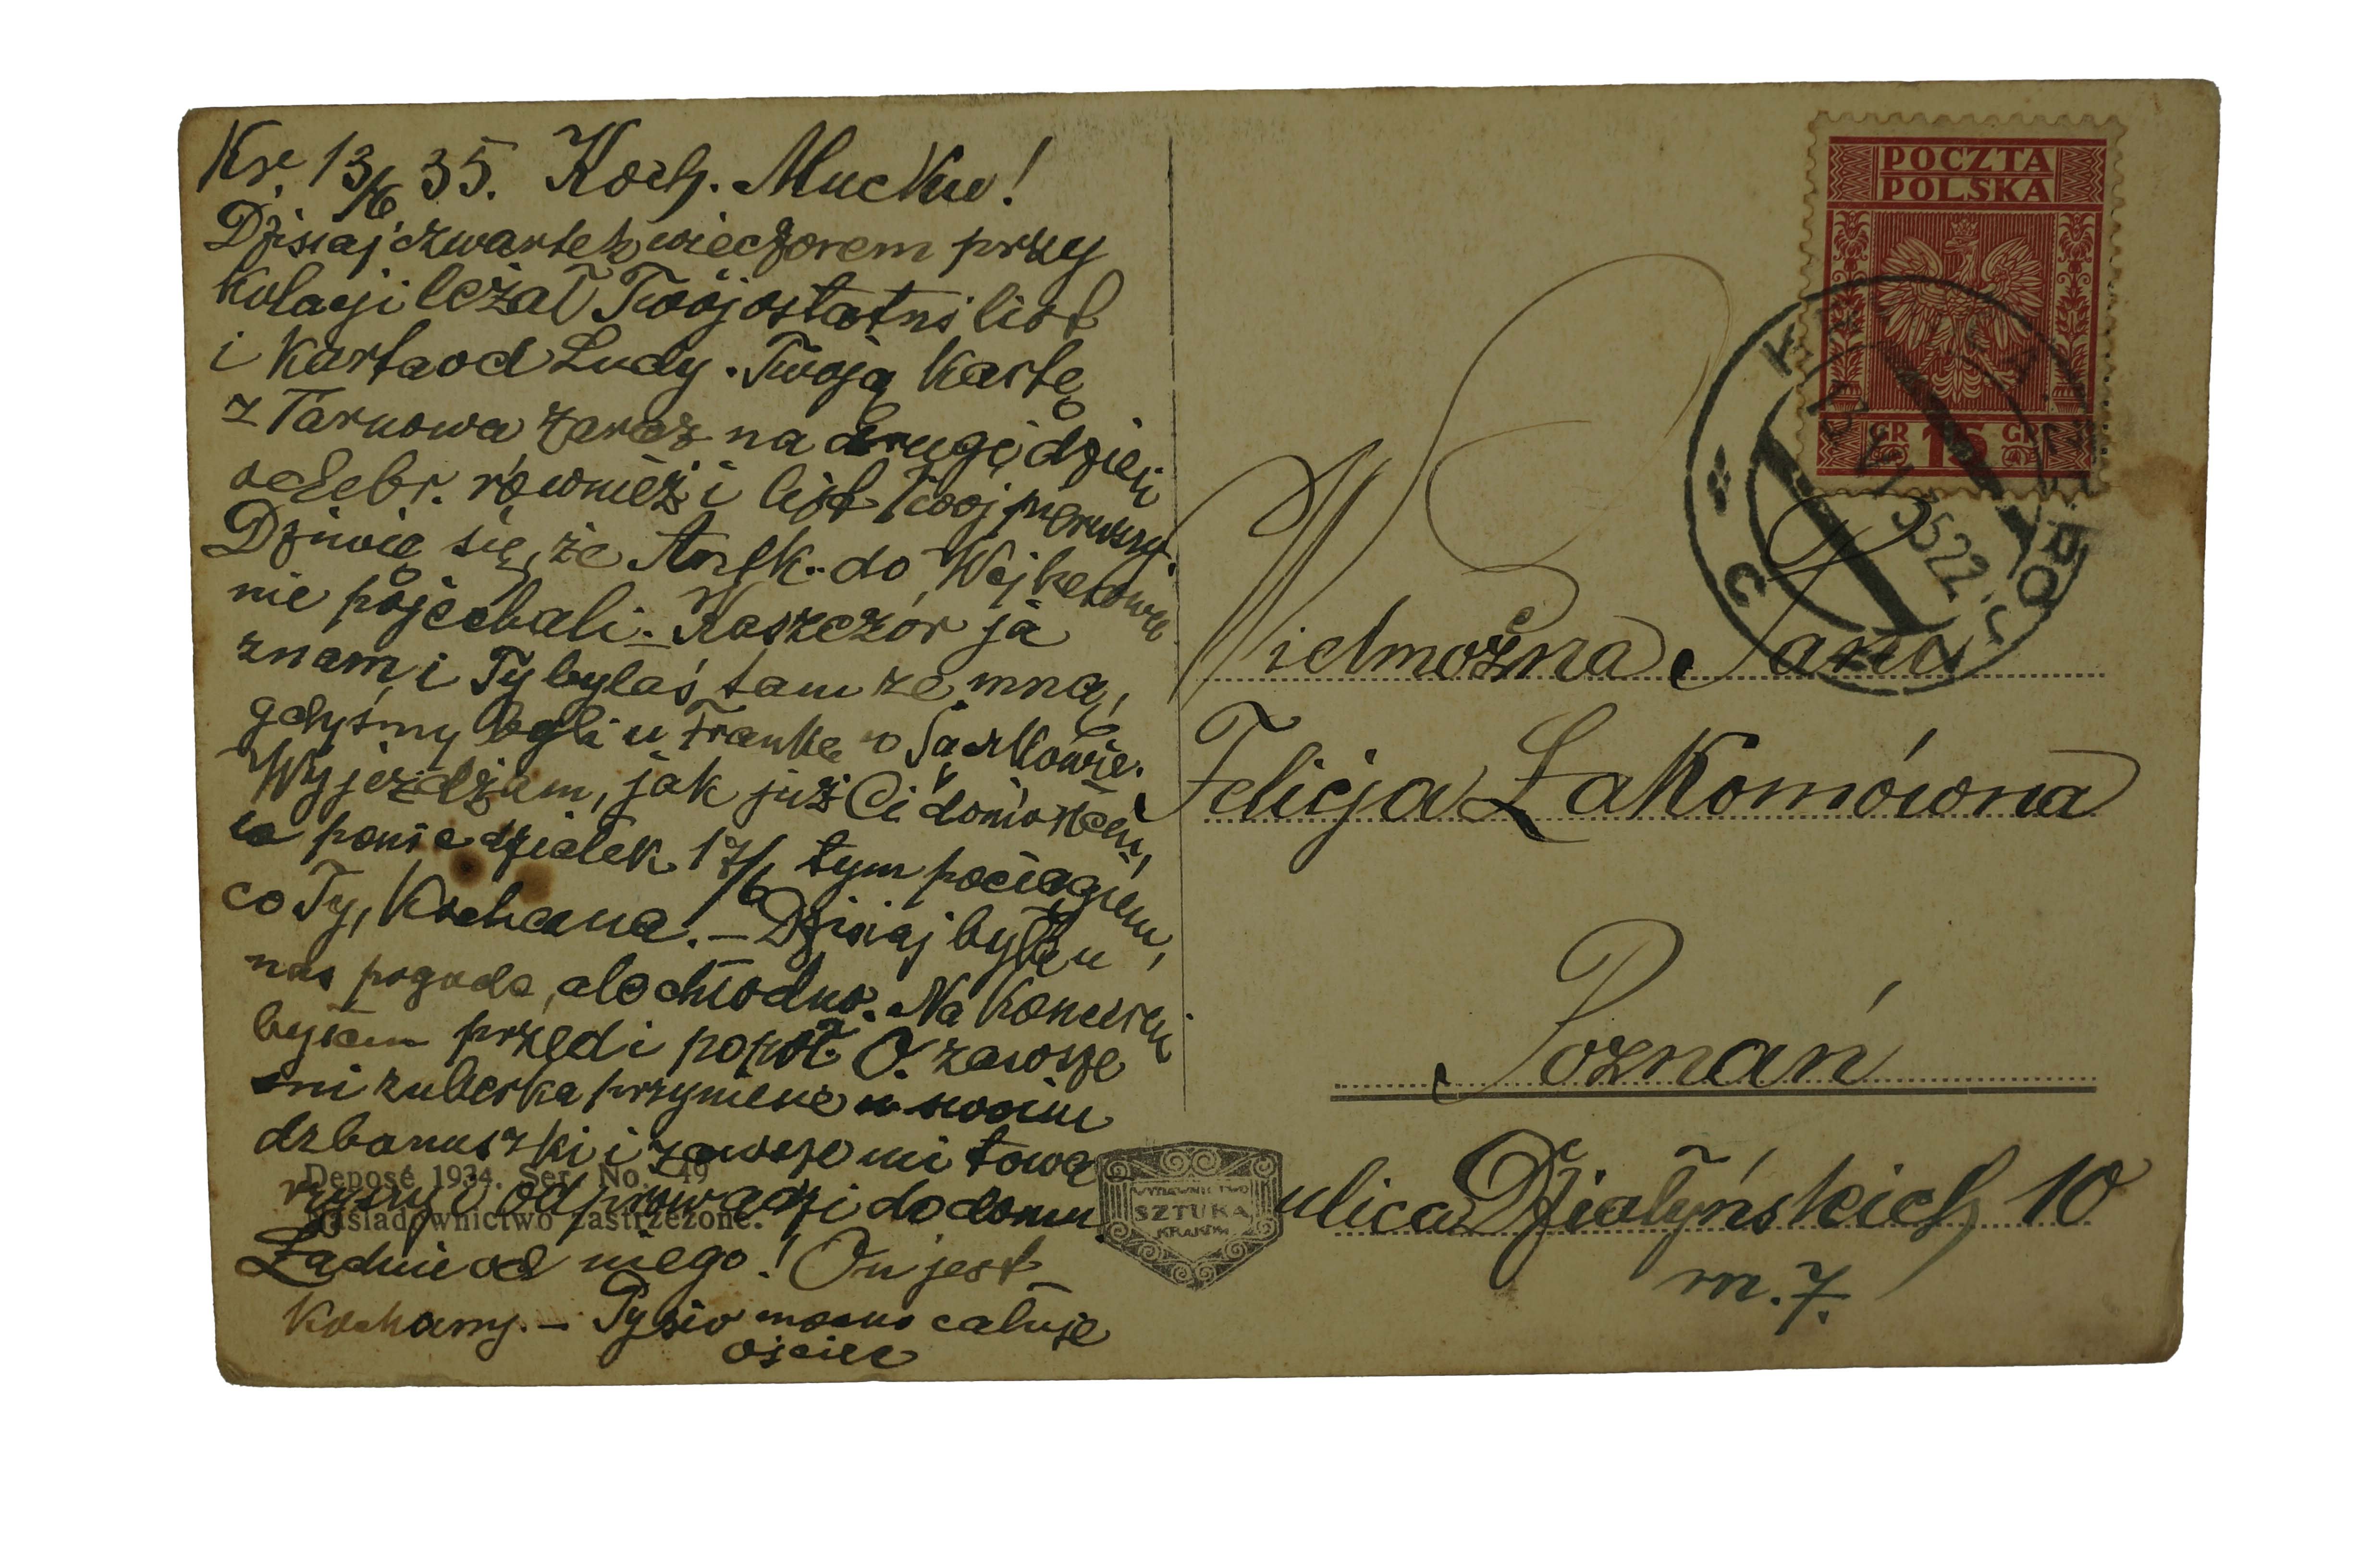 Kr. 13/6 35. Koch. Mucku!
Dzisiaj czwartek wieczorem przy
kolacji leżał Twój ostatni list
i karta od Ludy. Twoją kartę
z Tarnowa zaraz na drugi dzień
odebr. również i list Twój pierwszy.
Dziwię się, że do
nie pojechali. – Kaszczór ja
znam i Ty byłaś tam ze mną,
gdyśmy byli u Franka w
Wyjeżdżam, jak już Ci doniosłem,
w poniedziałek 17/6 tym pociągiem,
co Ty, Kochana. – Dzisiaj była u
nas pogoda, ale chłodno. Na koncercie
byłem przed i popoł. O. zawsze
mi zuberka przyniesie w swoim
dzbanuszki i zawsze mi towa
rzyszy i odprowadzi do domu.
Ładnie od niego! On jest
kochany. – mocno całuje
ojciec
Deposé 1934. Ser. No. 49
Naśladownictwo zastrzeżone.
WYDAWNICTWO
SZTUKA
KRAKÓW
POCZTA
POLSKA
GR 15 GR
Wielmożna Pani
Felicja Łakomówna
Poznań
ulica Działyńskich 10
m. 7.